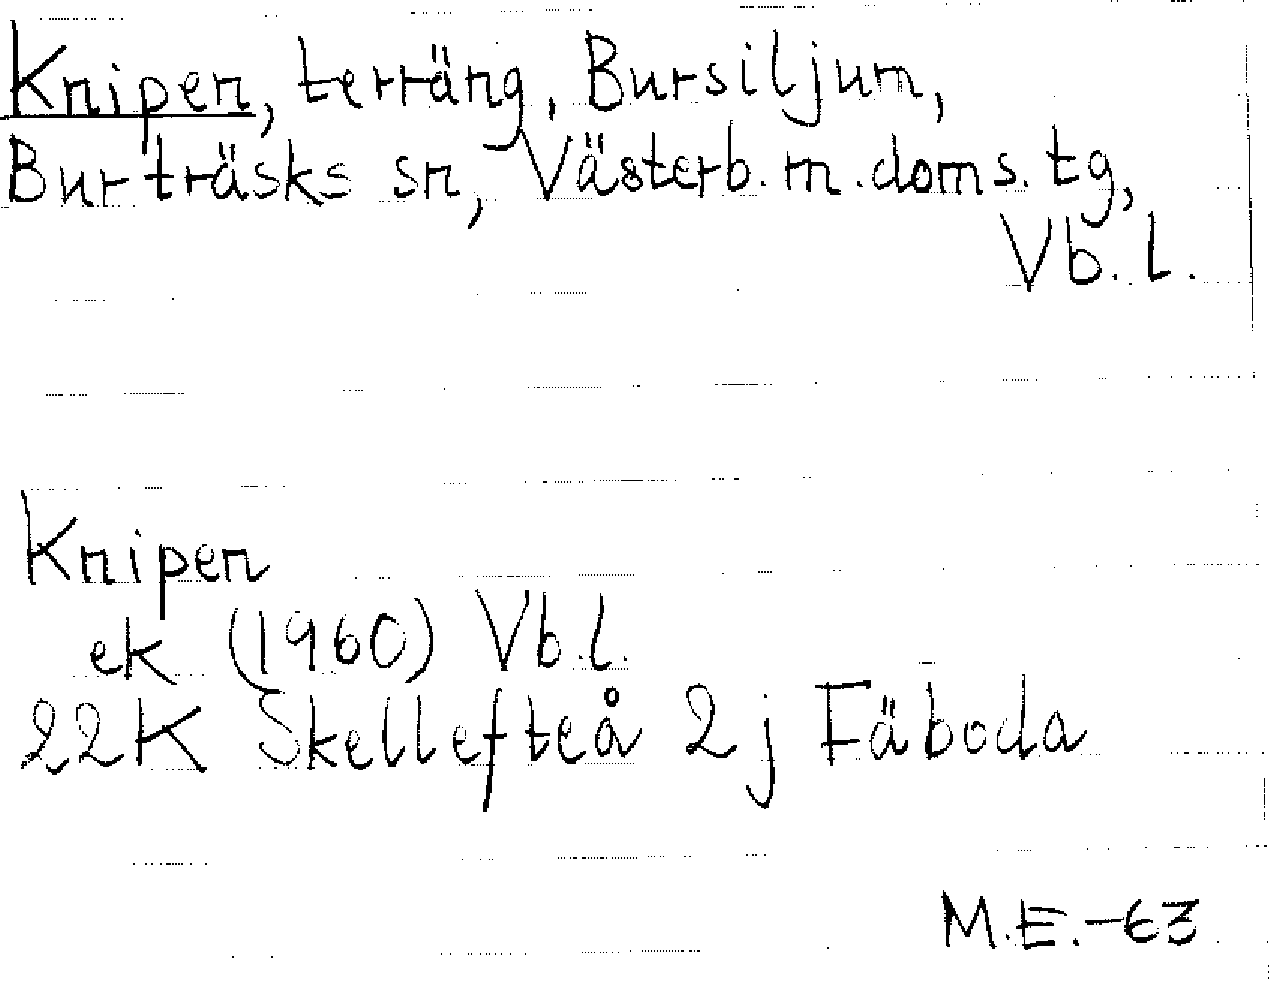 Knipen, terräng, Bursiljum,
Burträsks sn, Västerb. m. doms. tg,
Vb. l.
Knipen
ek (1960) Vb. l.
22K Skellefteå 2j Fäboda
M.E.-63